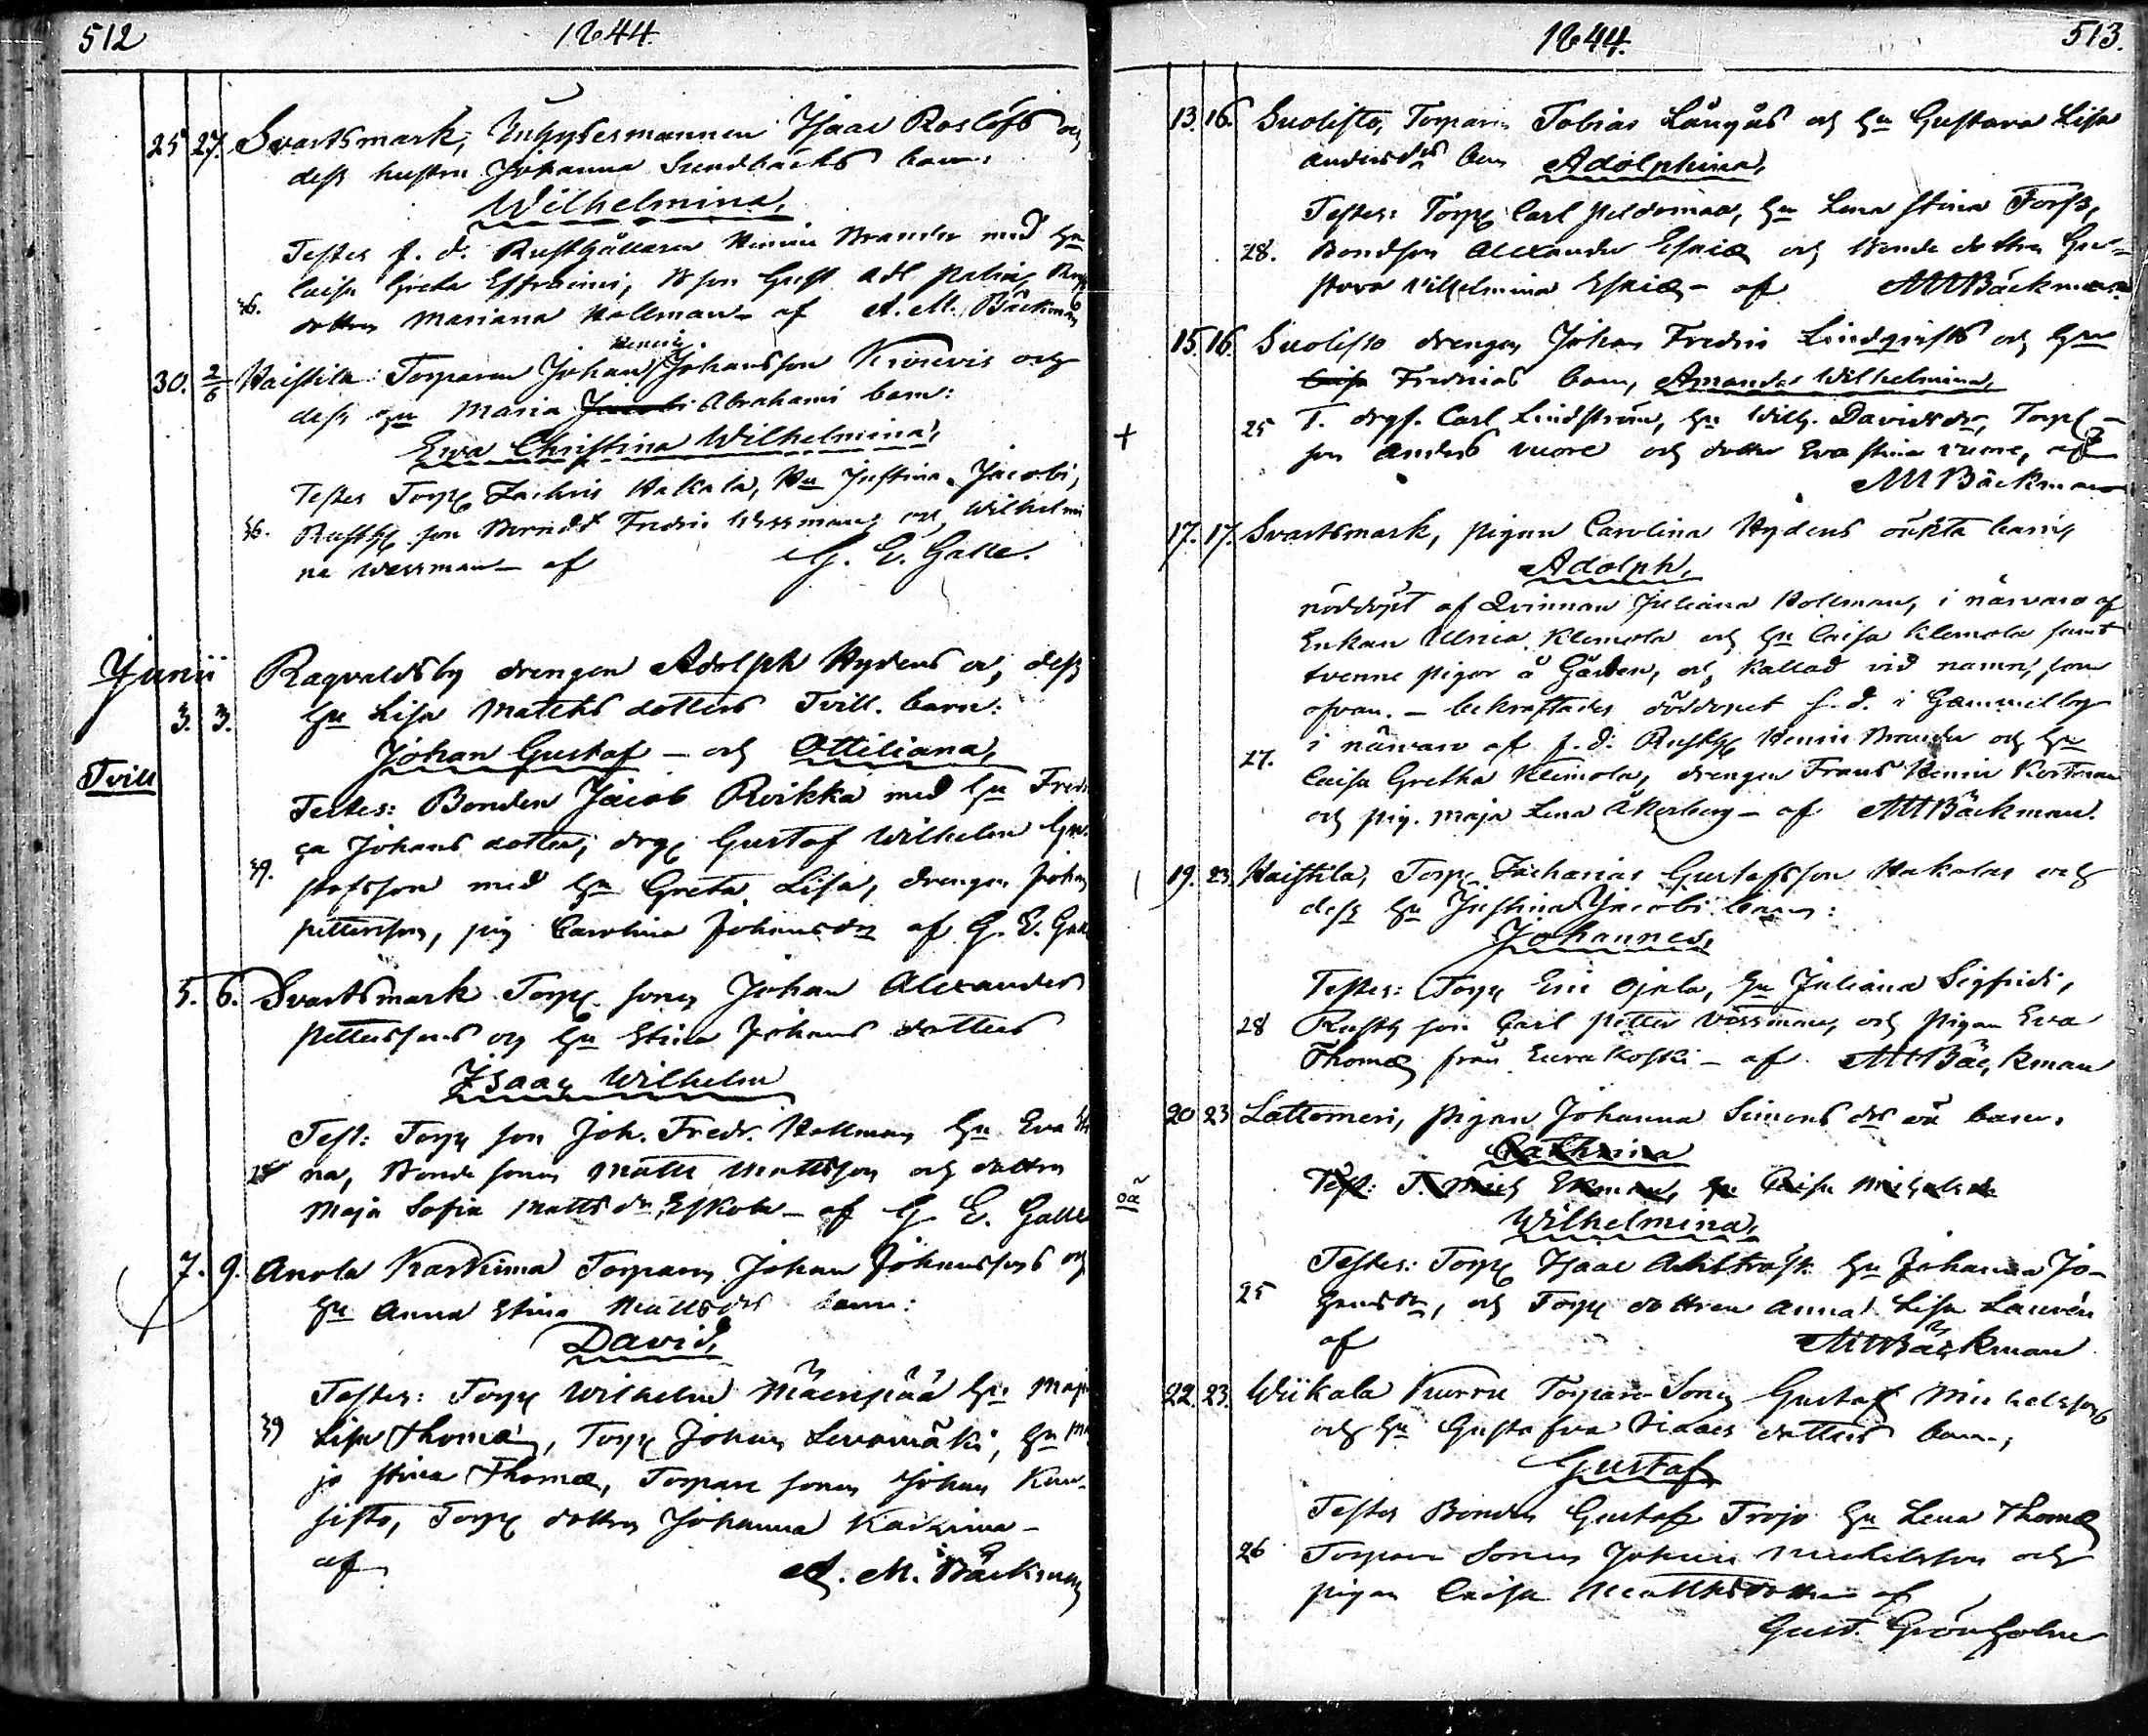 512
1844.
25 27. Svartsmark, Inhysesmannen Isaac Roslöfs och
dess hustru Johanna Sundbäcks barn:
Wilhelmina,
Testes f. d. Rusthållaren Henric Brander med Hu
Caisa Greta Effraimi, B son Gust. Adl.
36. dottren Mariana Hollman - af A. M. Bäckman
Henric
30. 2/6 Haistila: Torparen Johan Johansson Krouvis och
dess Hu Maria Jacobi Abrahami barn:
Ewa Christina Wilhelmina,
Testes Torp Zachris Hakala, Hu Justina Jacobi,
36. Rusth son Berndt Fredric Wessman och Wilhelmi
na Wessman - af G. E. Galle.
Junii Ragvaldsby drengen Adolph Hydens och dess
3. 3. Hu Lisa Matths dotters Tvill. barn:
Johan Gustaf - och Ottiliana,
Tvill
Testes: Bonden Jacob Rvikka med Hu Fredri
ca Johans dotter, drg Gustaf Wilhelm Gu
39. stafsson med Hu Greta Lisa, drengen Johan
Pettersson, pig Carolina Johansdr af G. E. Galle
5. 6. Svartsmark Torp. sonen Johan Alexander
Petterssons och Hu Stina Johans dotters
Isaac Wilhelm
Test: Torp son Joh. Fredr. Hollman Hu Eva Sti
28 na, Bonde sonen Matts Mattsson och dottren
Maja Sofia Matts dr Eskola - af G. E. Galle
7. 9. Anola Karkima Torparen Johan Johanssons och
Hu Anna Stina Mattsdrs barn:
David,
Testes: Torp Wilhelm Mäenpää Hu Maja
39 Lisa Thomæ, Torp Johan Levomäki, Hu Ma
ja Stina Thomæ, Torpare sonen Johan Kau-
sisto, Torp dottren Johanna Karkima -
af A. M. Bäckman
1844.
513.
13. 16. Suolisto, Torparen Tobias Långås och Hu Gustava Lisa
Andersdrs barn Adolphina,
Testes: Torp Carl Peldomaa, Hu Lena Stina Forss,
28. Bondson Alexander Eskiæ och Bonde dottren Gu-
stava Vilhelmina Eskiæ - af AMBäckman
15. 16. Suolisto drengen Johan Fredric Lindqvists och Hu
Caisa Fredricas barn, Amanda Wilhelmina,
+ 25 T. drgs. Carl Lindström, Hu Wilh. Davidsdr, Torp -
son Anders Vuore och dotter Eva Stina Vuore, af
AMBäckman
17. 17. Svartsmark, pigan Carolina Hydens oäkta barn
Adolph,
nöddöpt af Qvinnan Juliana Hollman, i närvaro af
Enkan Ulrica Klemola och Hu Caisa Klemola samt
tvenne pigor å Gården, och kallad vid namn, som
ofvan. - bekräftades nöddopet s. d. i Gammelby
27. i närvaro af f. d. Rusth Henric Brander och Hu
Caisa Gretha Klemola, drengen Frans Henric Kortman
och pig. Maja Lena Åkerberg - af AMBäckman.
19. 23. Haistila, Torp Zacharias Gustafsson Hakalas och
dess Hu Justina Jacobi barn:
Johannes,
Testes: Torp Eric Ojala, Hu Juliana Sigfridi,
28 Rusth son Carl Petter Vessman, och pigan Eva
Thomæ från Eurakoski - af AMBäckman
20 23 Lattomeri, pigan Johanna Simons drs oä barn.
Cathrina
Test: T. Mich Ekman, Hu Caisa Michelsdr
oä Wilhelmina,
Testes: Torp Isaac Ahlstrost Hu Johanna Jo-
25 hansdr, och Torp dottren Anna Lisa Lauren
af AMBäckman
22. 23. Wiikala Kurru Torpare Sonen Gustaf Michelssons
och Hu Gustafva Isaacs dotters barn;
Gustaf
Testes Bonden Gustaf Trojo Hu Lena Thomæ
26 Torpare Sonen Johan Michelsson och
pigan Caisa Matthsdotter af
Gust. Grönholm